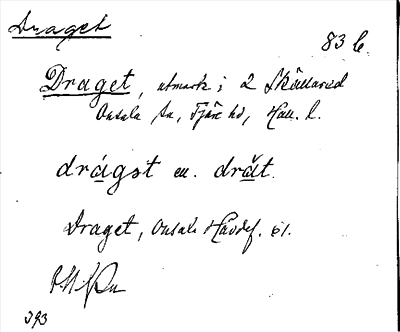 Draget
83 b.
Draget, utmark i 2 Skällared
Onsala sn, Fjäre hd, Hall. l.
drágət en. drăt.
Draget, Onsala Hävdef. 61.
393